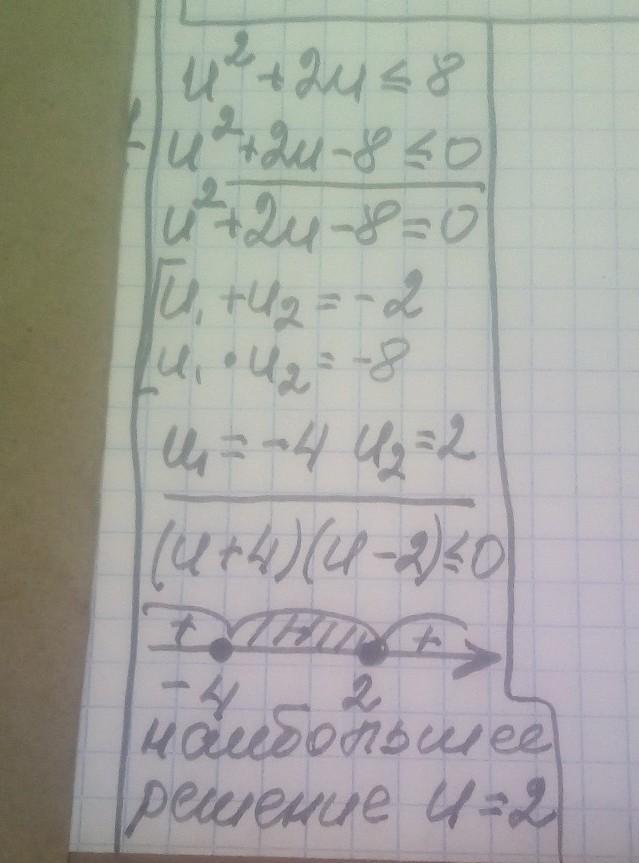 u² + 2u ≤ 8
u² + 2u - 8 ≤ 0
u² + 2u - 8 = 0
u₁ + u₂ = -2
u₁ · u₂ = -8
u₁ = -4 u₂ = 2
(u + 4)(u - 2) ≤ 0
+ +
-4 2
наибольшее
решение u = 2